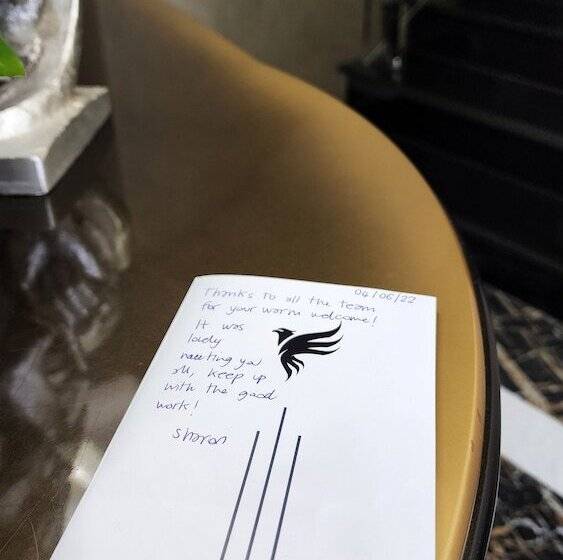 04/06/22
Thanks to all the team
for your warm welcome!
It was
lovely
meeting you
all, keep up
with the good
work!
Sharon